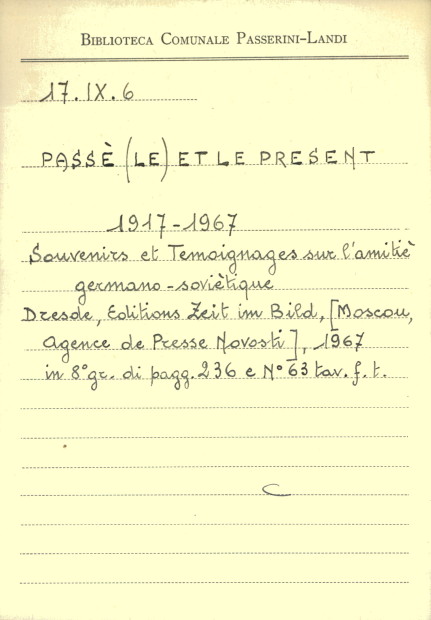 BIBLIOTECA COMUNALE PASSERINI-LANDI
17.IX.6
PASSÈ (LE) ET LE PRESENT
1917-1967
Souvenirs et Temoignages sur l'amitiè
germano-soviètique
Dresde, Editions Zeit im Bild, [Moscou,
Agence de Presse Novosti], 1967
in 8° gr. di pagg. 236 e N° 63 tav. f. t.